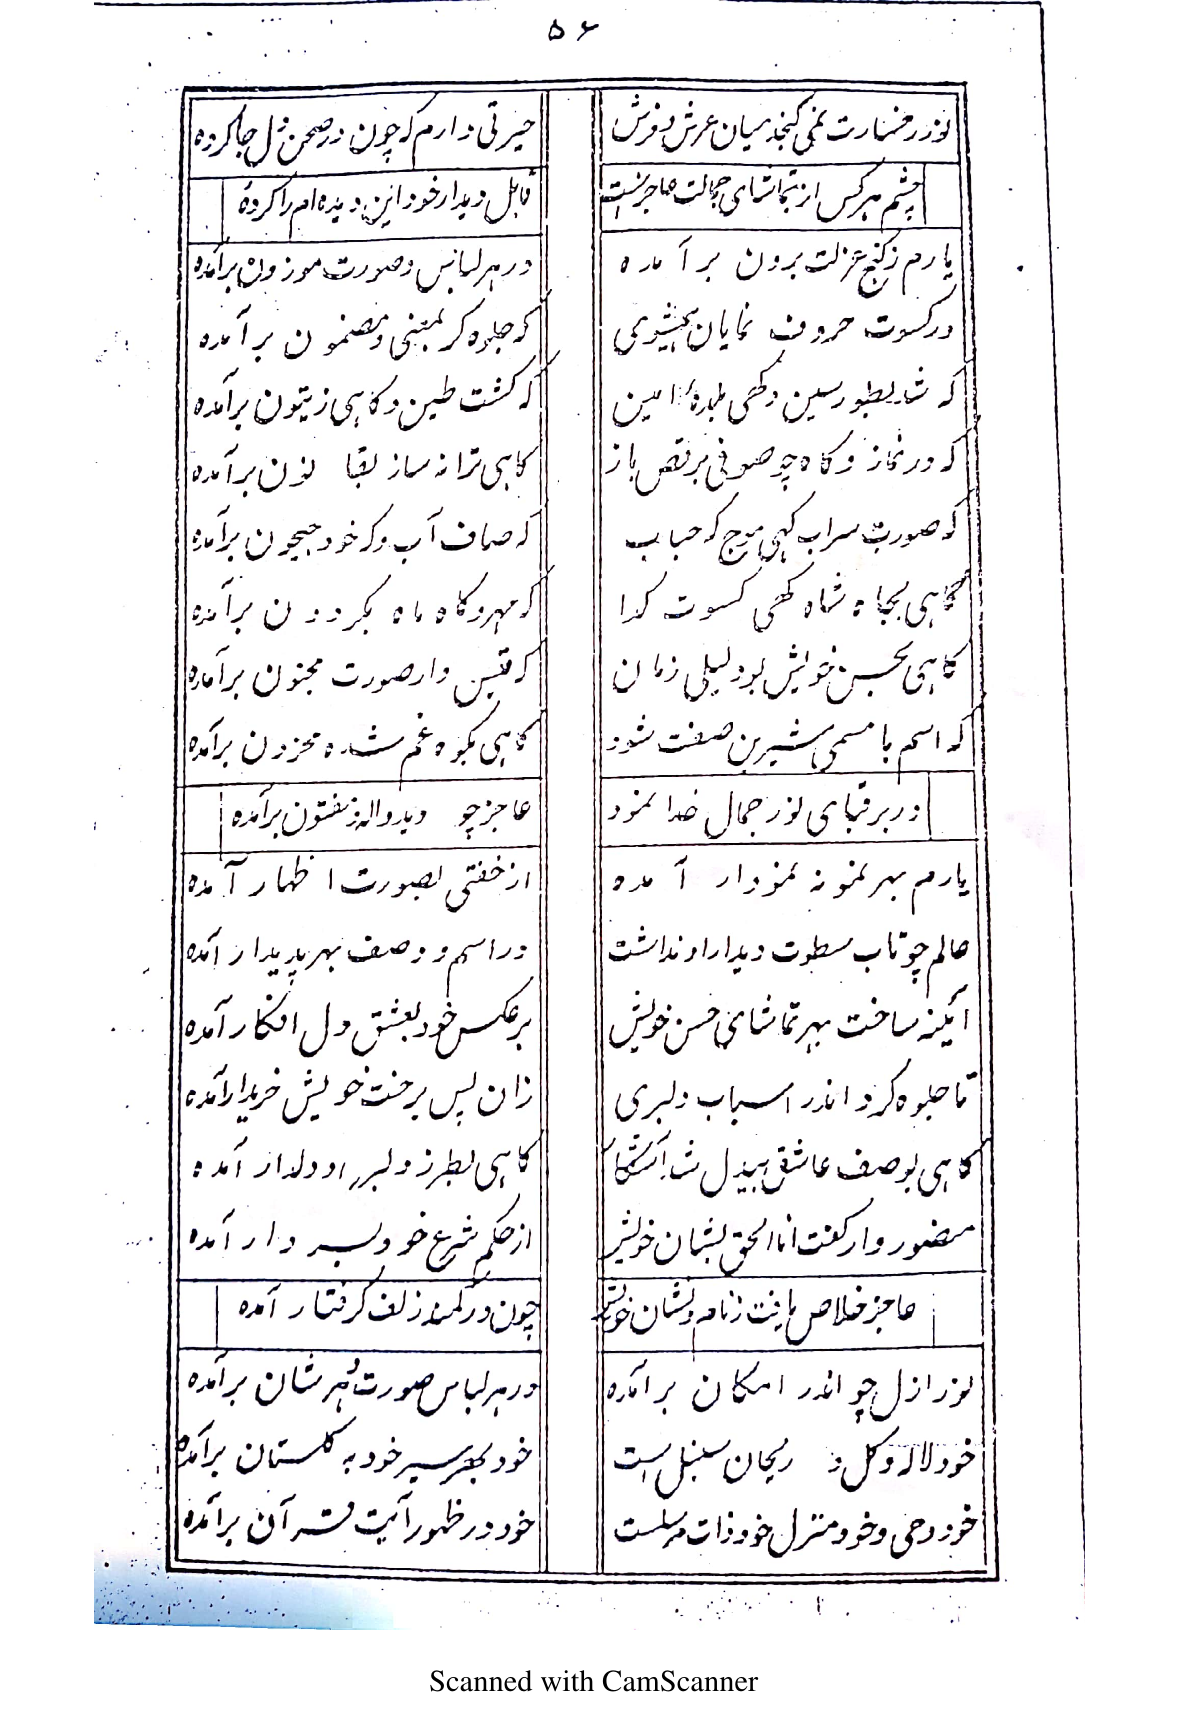 ۵۶
نور رخسارت نمی گنجد میان عرش و فرش حیرتی دارم که چون در صحن دل جا کرده
چشم هر کس از تماشای جمالت عاجز است قابل دیدار خود این دیده ام را کردهٔ
یارم ز کنج عزلت برون بر آمده در هر لباس و صورت موزون برآمده
در کسوت حروف نمایان که جلوه گر بمعنی و مضمون بر آمده
که شد بطور سینین و گهی که گشت طین و گاهی زیتون برآمده
که در نماز و گاه چو صوفی برقص باز گاهی ترانه ساز برآمده
که صورت سراب گهی موج که حباب که صاف آب و که خود جیحون برآمده
گاهی بجاه شاه گهی کسوت گدا که مهر و گاه ماه بگردون برآمده
گاهی بحسن خویش بود لیلی زمان که قیس وار صورت مجنون برآمده
که اسم با مسمی شیرین صفت شود گاهی بکوه غم شده محزون برآمده
در بر قبای نور جمال خدا نمود عاجز چو دید واله و مفتون برآمده
یارم بهر نمونه نمودار آمده از خفتی بصورت اظهار آمده
عالم چو تاب سطوت دیدار او نداشت در اسم و وصف بهر پدیدار آمده
آئینه ساخت بهر تماشای حسن خویش بر عکس خود بعشق دل افکار آمده
تا جلوه کرد اندر اسباب دلبری زان پس برخت خویش خریدار آمده
گاهی بوصف عاشق بیدل شد آشکار گاهی بطرز دلبر و دلدار آمده
منصور وار گفت انا الحق بشان خویش از حکم شرع خود بسر دار آمده
عاجز خلاص یافت ز نام و نشان خویش چون در کمند زلف گرفتار آمده
نور ازل چو اندر امکان برآمده در هر لباس صورت و هر شان برآمده
خود لاله و گل و ریحان سنبل است خود بهر سیر خود به گلستان برآمده
خود وحی و خود منزل خود ذات مرسلست خود در ظهور آیت قرآن برآمده
Scanned with CamScanner